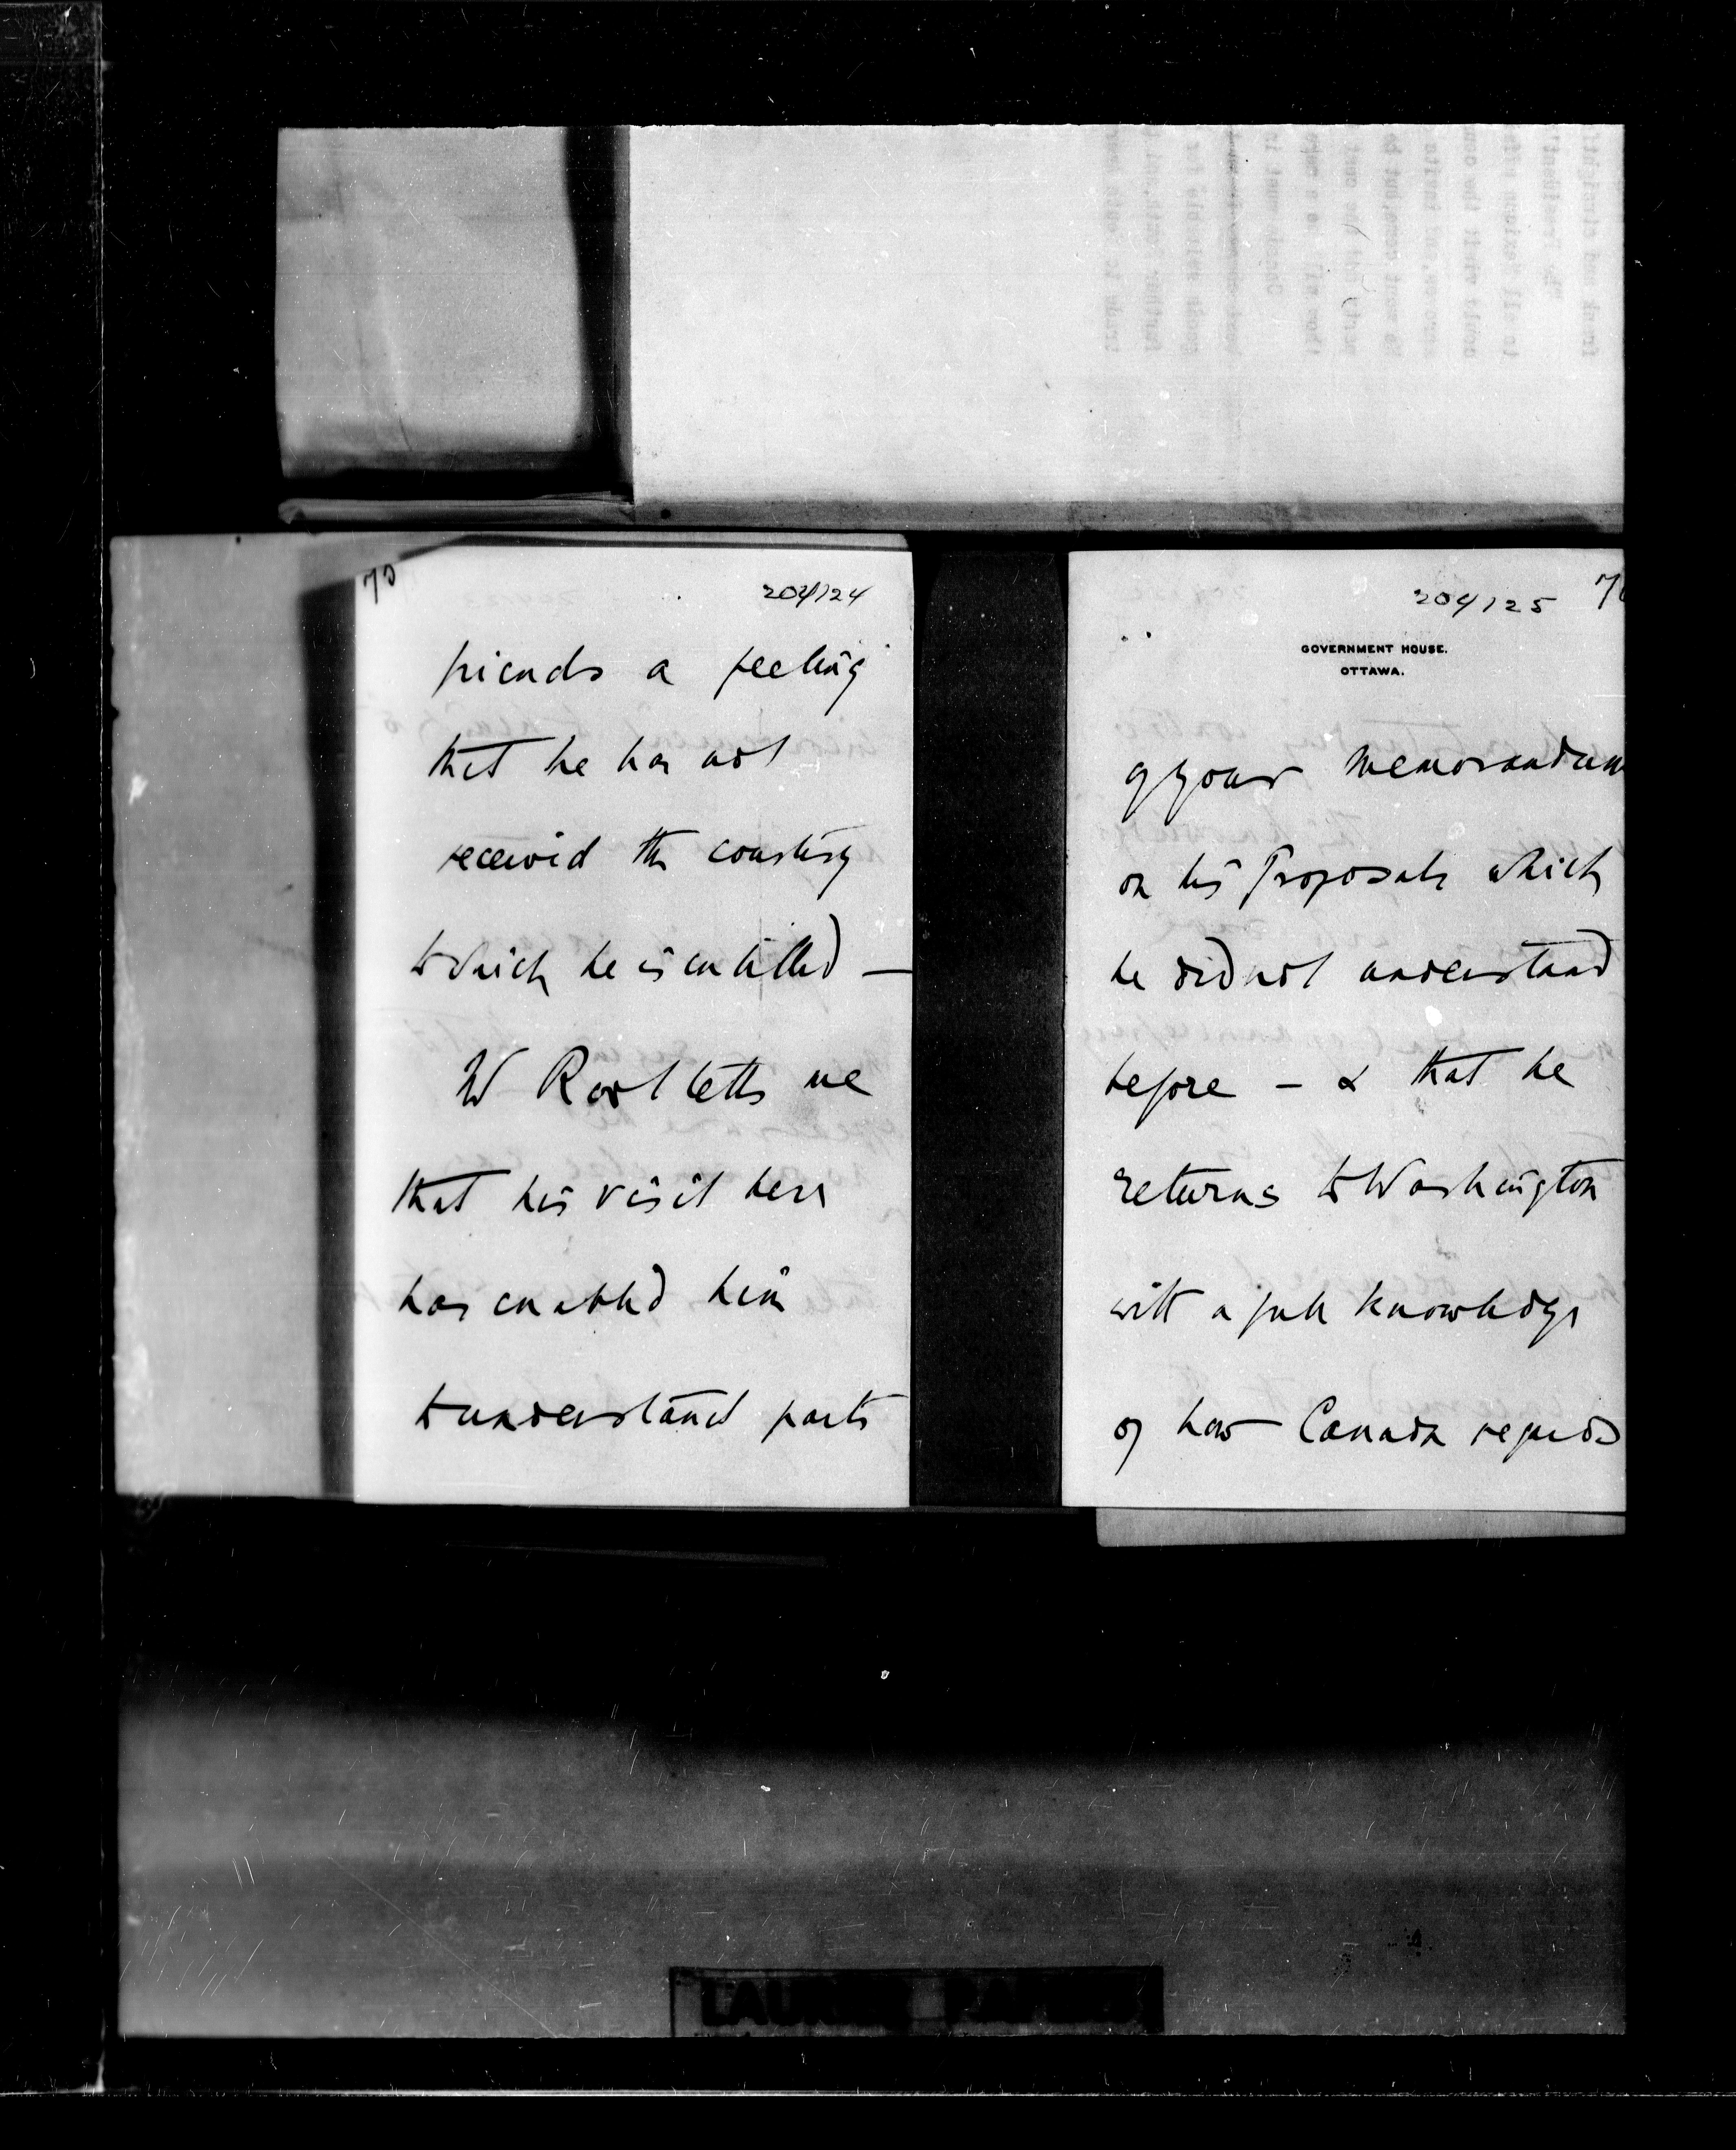 70
204124
friends a feeling
that he has not
received the courtesy
to which he is entitled —
Mr Root tells me
that his visit here
has enabled him
to understand parts
204125
GOVERNMENT HOUSE.
OTTAWA.
of your Memorandum
on his Proposals which
he did not understand
before — & that he
returns to Washington
with a full knowledge
of how Canada regards